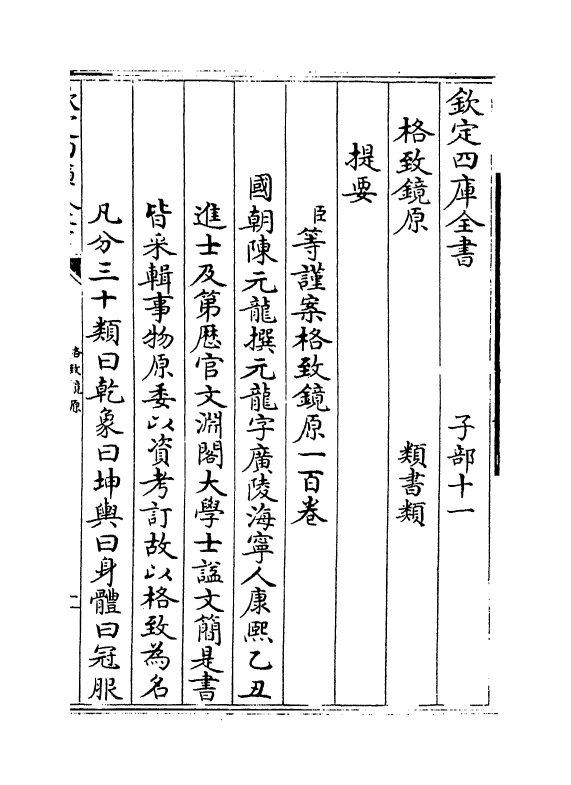 欽定四庫全書　　　　子部十一
格致鏡原　　　　類書類
提要
臣等謹案格致鏡原一百卷
國朝陳元龍撰元龍字廣陵海寧人康熙乙丑
進士及第歴官文淵閣大學士諡文簡是書
皆采輯事物原委以資考訂故以格致為名
凡分三十類曰乾象曰坤輿曰身體曰冠服
格致鏡原